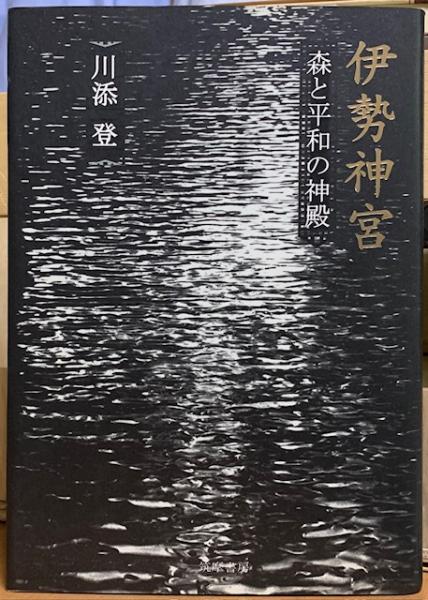 伊勢神宮
森と平和の神殿
川添 登
筑摩書房